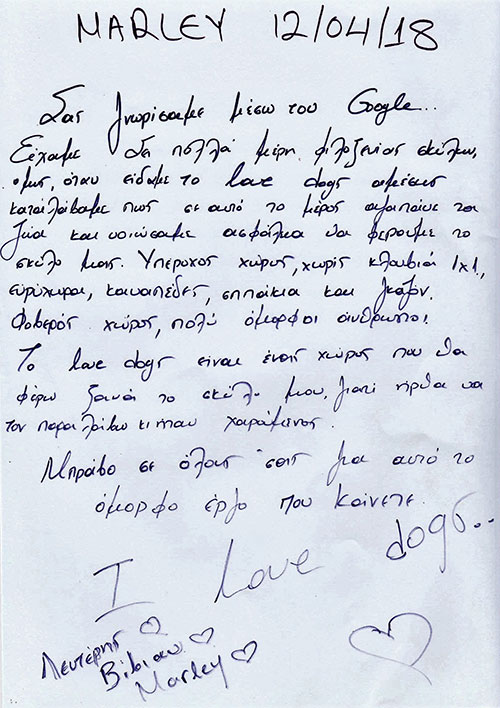 MARLEY 12/04/18
Σας γνωρίσαμε μέσω του Google...
Είχαμε δει πολλά μέρη φιλοξενίας σκύλων,
όμως, όταν είδαμε το love dogs αμέσως
καταλάβαμε πως σε αυτό το μέρος αγαπάνε τα
ζώα και νοιώσαμε ασφάλεια να φέρουμε το
σκύλο μας. Υπέροχος χώρος, χωρίς κλουβιά 1x1,
ευρύχωροι, καναπέδες, σπιτάκια και γκαζόν.
Φοβερός χώρος, πολύ όμορφοι άνθρωποι.
Το love dogs είναι ένας χώρος που θα
φέρω ξανά το σκύλο μου, γιατί ήρθα να
τον παραλάβω κι ήταν χαρούμενος.
Μπράβο σε όλους σας για αυτό το
όμορφο έργο που κάνετε.
I love dogs...
Λευτέρης
Βίβιαν
Marley